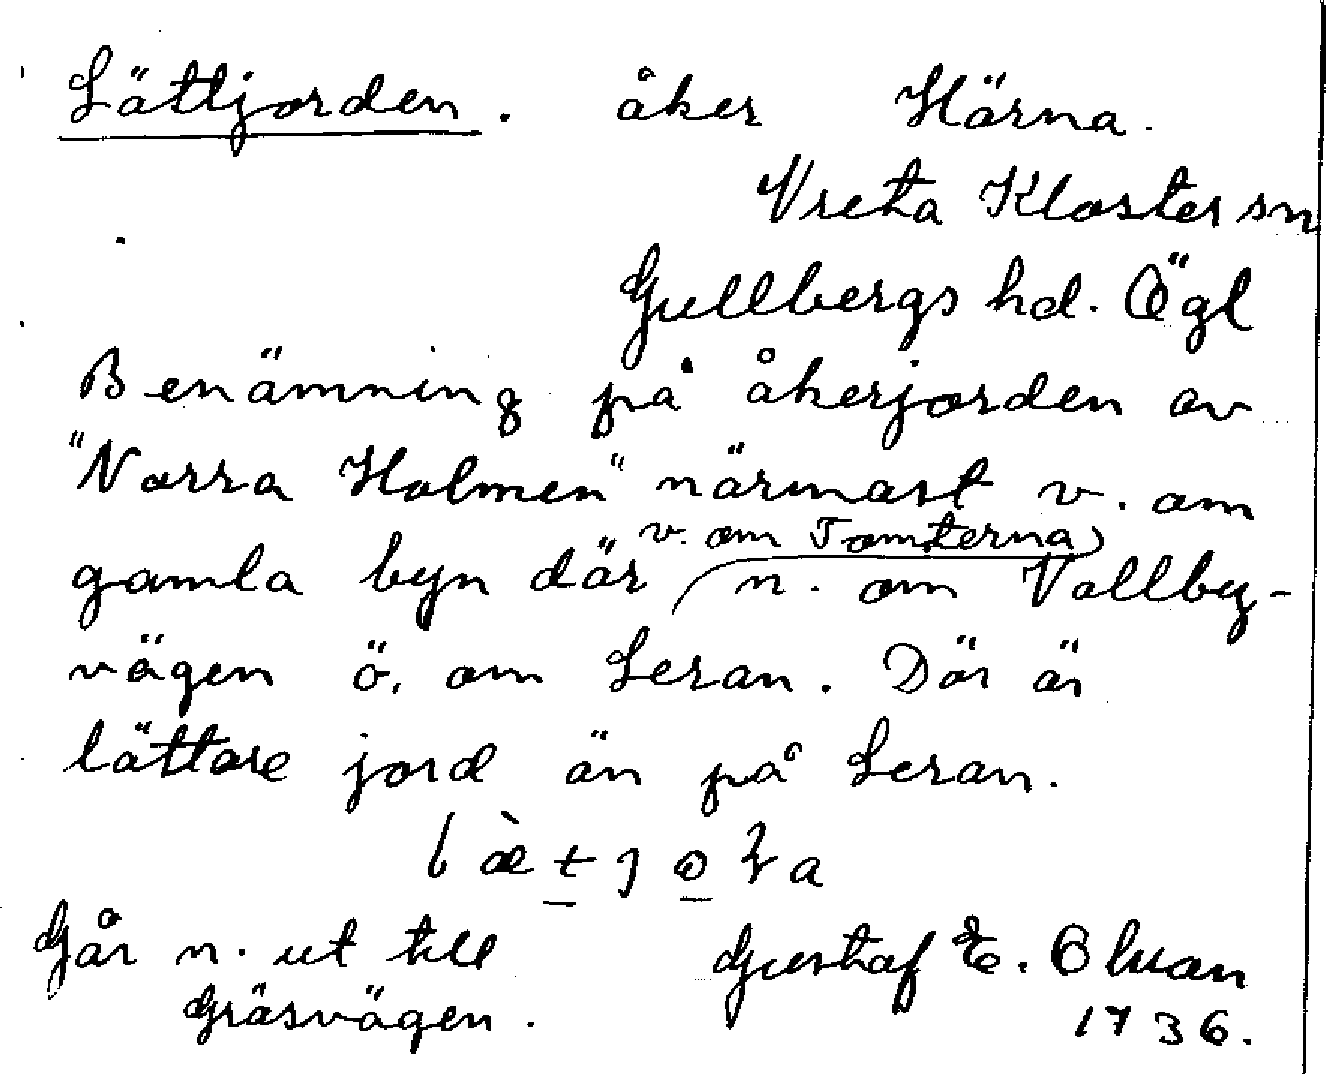 Lättjorden. åker Härna.
Vreta Kloster sn
Gullbergs hd. Ögl
Benämning på åkerjorden av
"Norra Holmen" närmast v. om
v. om Tomterna
gamla byn där n. om Vallby-
vägen ö. om Leran. Där är
lättare jord än på Leran.
Går n. ut till Gustaf E.
Gräsvägen. 1936.